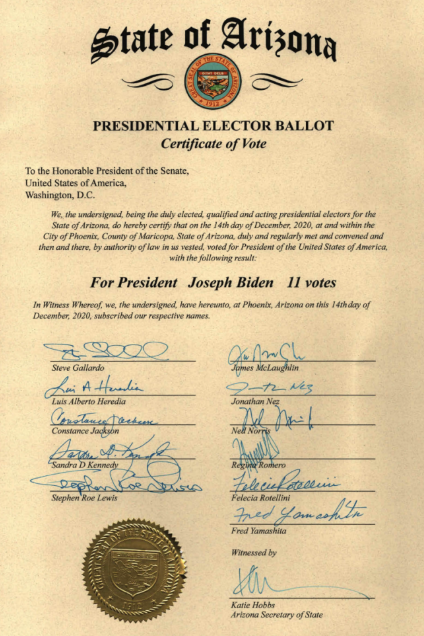 State of Arizona
PRESIDENTIAL ELECTOR BALLOT
Certificate of Vote
To the Honorable President of the Senate,
United States of America,
Washington, D.C.
We, the undersigned, being the duly elected, qualified and acting presidential electors for the
State of Arizona, do hereby certify that on the 14th day of December, 2020, at and within the
City of Phoenix, County of Maricopa, State of Arizona, duly and regularly met and convened and
then and there, by authority of law in us vested, voted for President of the United States of America,
with the following result:
For President Joseph Biden 11 votes
In Witness Whereof, we, the undersigned, have hereunto, at Phoenix, Arizona on this 14th day of
December, 2020, subscribed our respective names.
Steve Gallardo
Luis A Heredia
Luis Alberto Heredia
Constance Jackson
Constance Jackson
Sandra D. Kennedy
Sandra D Kennedy
Stephen Roe Lewis
Stephen Roe Lewis
James McLaughlin
Jonathan Nez
Ned Norris
Regina Romero
Felecia Rotellini
Felecia Rotellini
Fred Yamashita
Fred Yamashita
Witnessed by
Katie Hobbs
Arizona Secretary of State